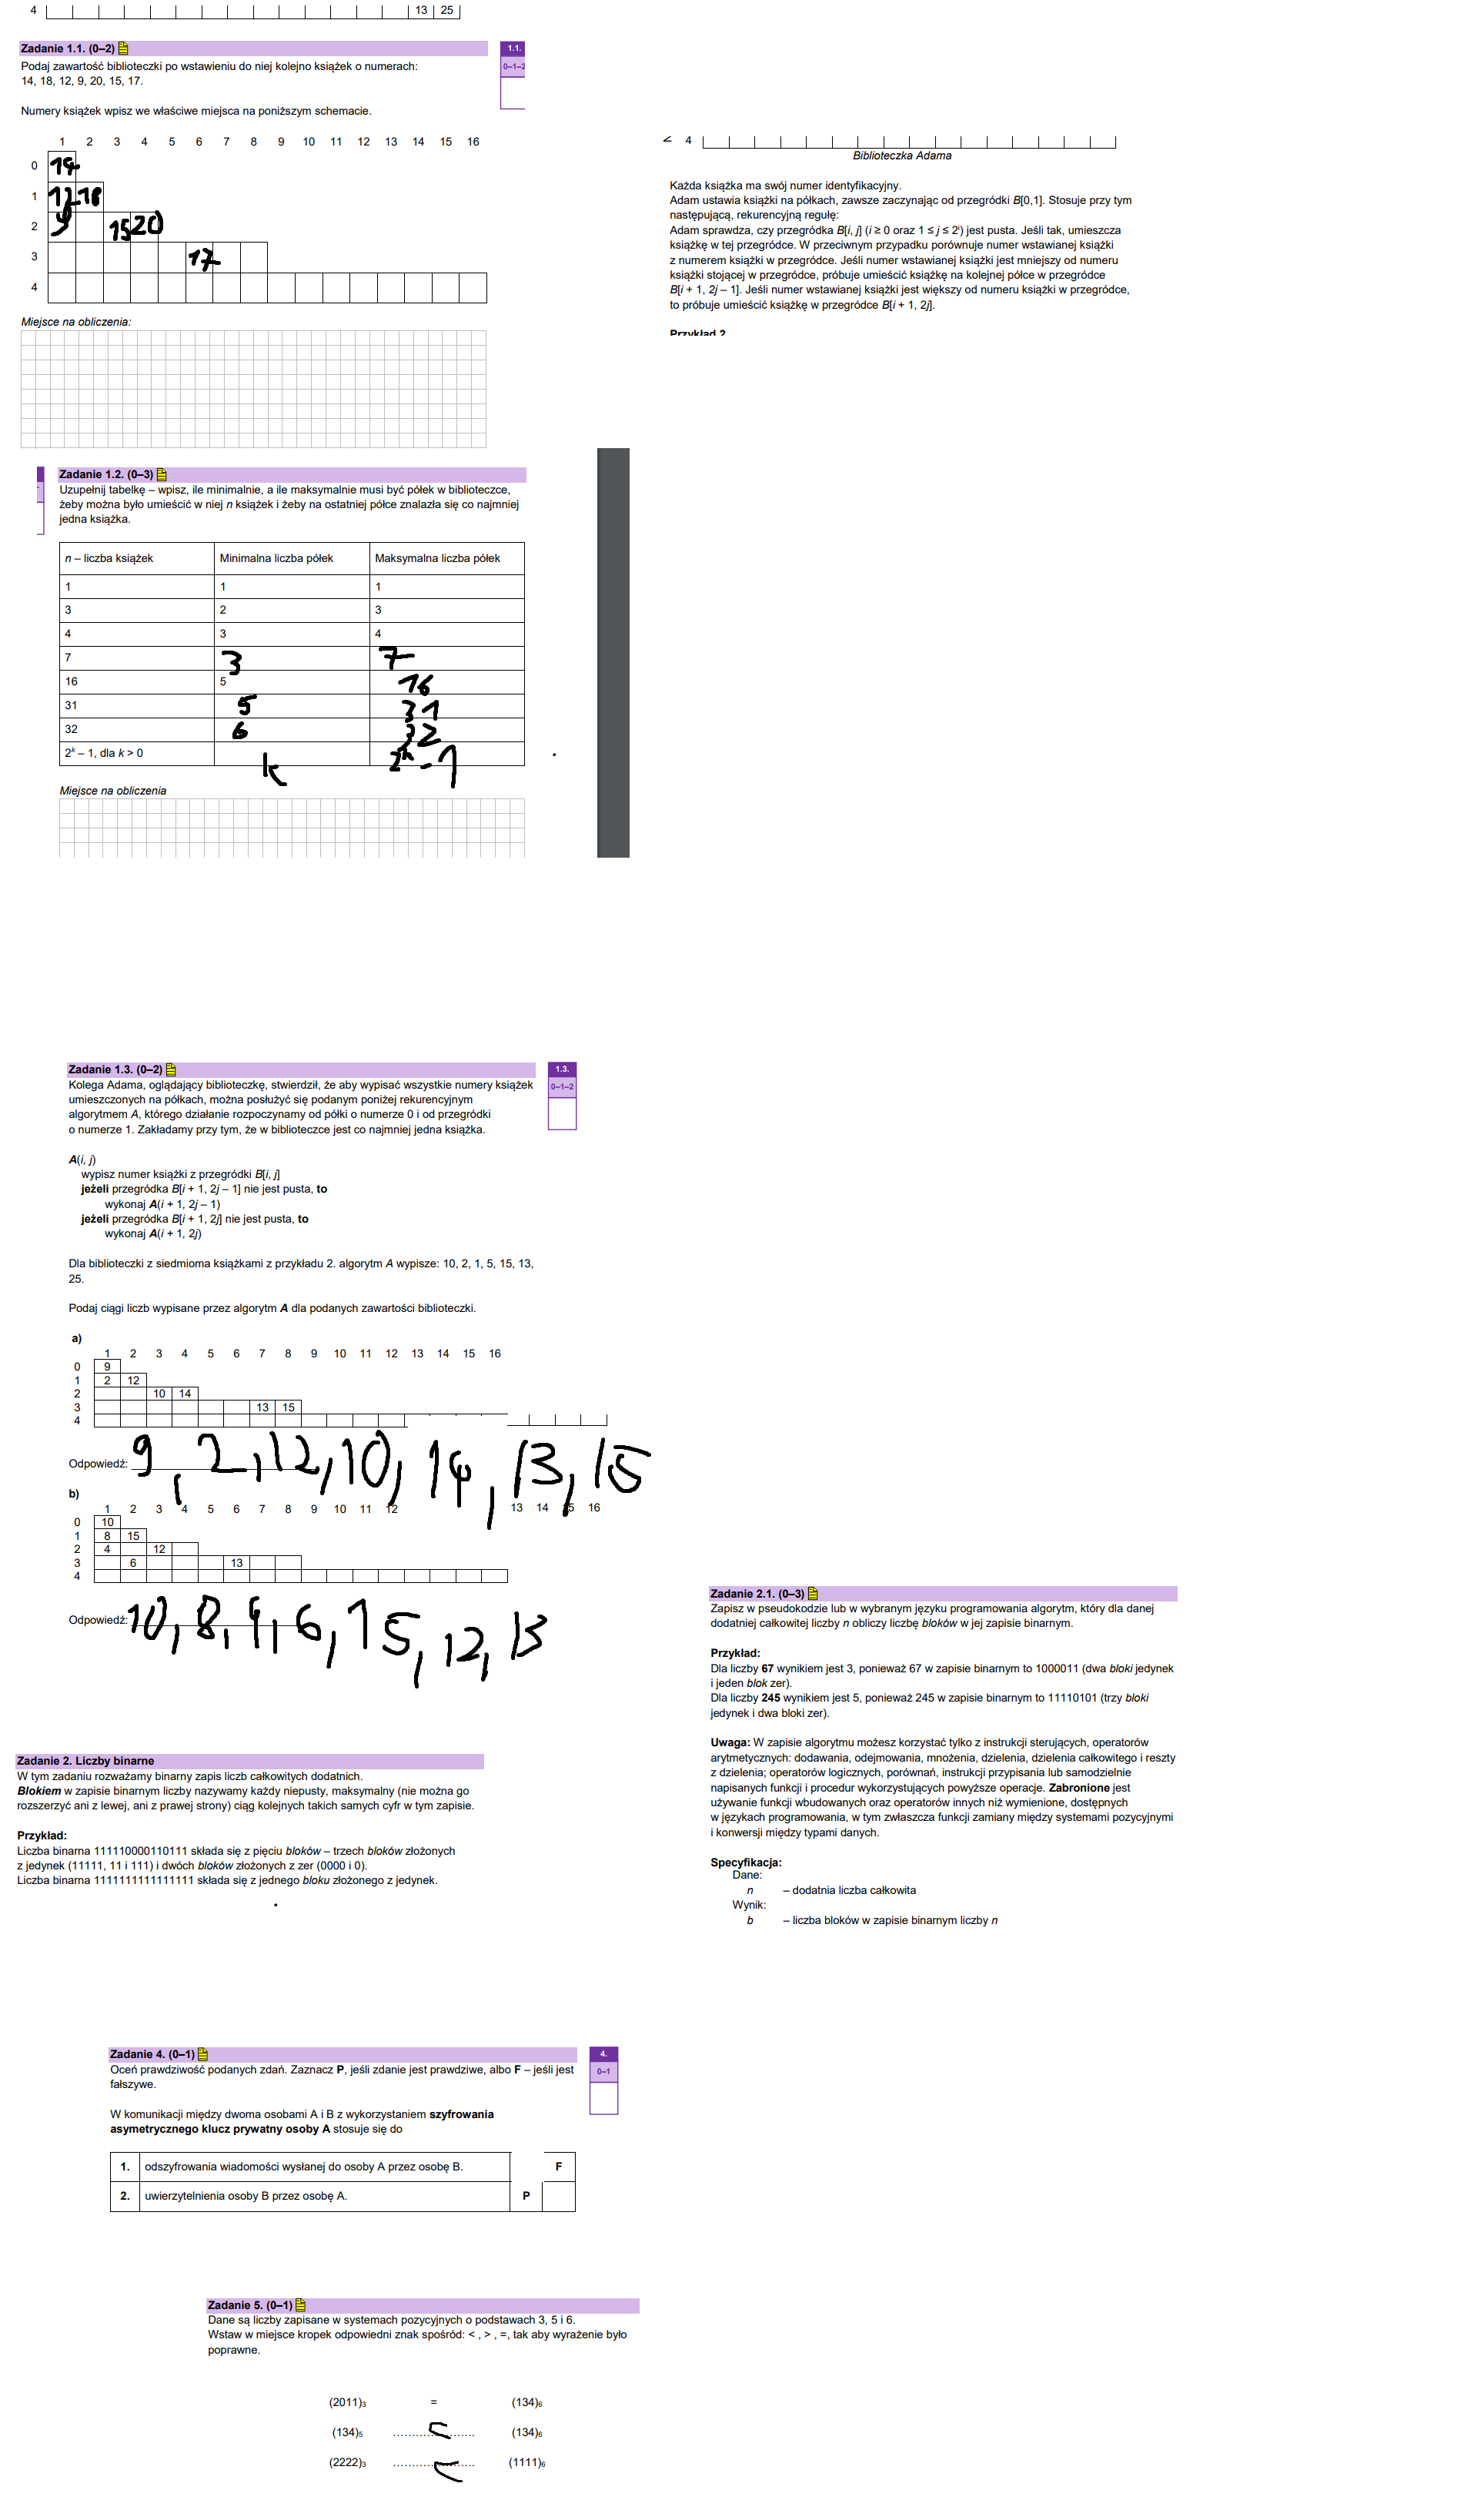 4 13 25
Zadanie 1.1. (0–2)
1.1.
0–1–2
Podaj zawartość biblioteczki po wstawieniu do niej kolejno książek o numerach:
14, 18, 12, 9, 20, 15, 17.
Numery książek wpisz we właściwe miejsca na poniższym schemacie.
1 2 3 4 5 6 7 8 9 10 11 12 13 14 15 16
0 14
1 12 18
2 9 15 20
3 17
4
Miejsce na obliczenia:
4
Biblioteczka Adama
Każda książka ma swój numer identyfikacyjny.
Adam ustawia książki na półkach, zawsze zaczynając od przegródki B[0,1]. Stosuje przy tym
następującą, rekurencyjną regułę:
Adam sprawdza, czy przegródka B[i, j] (i ≥ 0 oraz 1 ≤ j ≤ 2ⁱ) jest pusta. Jeśli tak, umieszcza
książkę w tej przegródce. W przeciwnym przypadku porównuje numer wstawianej książki
z numerem książki w przegródce. Jeśli numer wstawianej książki jest mniejszy od numeru
książki stojącej w przegródce, próbuje umieścić książkę na kolejnej półce w przegródce
B[i + 1, 2j – 1]. Jeśli numer wstawianej książki jest większy od numeru książki w przegródce,
to próbuje umieścić książkę w przegródce B[i + 1, 2j].
Przykład 2
Zadanie 1.2. (0–3)
Uzupełnij tabelkę – wpisz, ile minimalnie, a ile maksymalnie musi być półek w biblioteczce,
żeby można było umieścić w niej n książek i żeby na ostatniej półce znalazła się co najmniej
jedna książka.
n – liczba książek Minimalna liczba półek Maksymalna liczba półek
1 1 1
3 2 3
4 3 4
7 3 7
16 5 16
31 5 31
32 6 32
2ᵏ – 1, dla k > 0 k 2ᵏ - 1
Miejsce na obliczenia
Zadanie 1.3. (0–2)
1.3.
0–1–2
Kolega Adama, oglądający biblioteczkę, stwierdził, że aby wypisać wszystkie numery książek
umieszczonych na półkach, można posłużyć się podanym poniżej rekurencyjnym
algorytmem A, którego działanie rozpoczynamy od półki o numerze 0 i od przegródki
o numerze 1. Zakładamy przy tym, że w biblioteczce jest co najmniej jedna książka.
A(i, j)
wypisz numer książki z przegródki B[i, j]
jeżeli przegródka B[i + 1, 2j – 1] nie jest pusta, to
wykonaj A(i + 1, 2j – 1)
jeżeli przegródka B[i + 1, 2j] nie jest pusta, to
wykonaj A(i + 1, 2j)
Dla biblioteczki z siedmioma książkami z przykładu 2. algorytm A wypisze: 10, 2, 1, 5, 15, 13,
25.
Podaj ciągi liczb wypisane przez algorytm A dla podanych zawartości biblioteczki.
a)
1 2 3 4 5 6 7 8 9 10 11 12 13 14 15 16
0 9
1 2 12
2 10 14
3 13 15
4
Odpowiedź: 9, 2, 12, 10, 14, 13, 15
b)
1 2 3 4 5 6 7 8 9 10 11 12 13 14 15 16
0 10
1 8 15
2 4 12
3 6 13
4
Odpowiedź: 10, 8, 4, 6, 15, 12, 13
Zadanie 2. Liczby binarne
W tym zadaniu rozważamy binarny zapis liczb całkowitych dodatnich.
Blokiem w zapisie binarnym liczby nazywamy każdy niepusty, maksymalny (nie można go
rozszerzyć ani z lewej, ani z prawej strony) ciąg kolejnych takich samych cyfr w tym zapisie.
Przykład:
Liczba binarna 111110000110111 składa się z pięciu bloków – trzech bloków złożonych
z jedynek (11111, 11 i 111) i dwóch bloków złożonych z zer (0000 i 0).
Liczba binarna 1111111111111111 składa się z jednego bloku złożonego z jedynek.
Zadanie 2.1. (0–3)
Zapisz w pseudokodzie lub w wybranym języku programowania algorytm, który dla danej
dodatniej całkowitej liczby n obliczy liczbę bloków w jej zapisie binarnym.
Przykład:
Dla liczby 67 wynikiem jest 3, ponieważ 67 w zapisie binarnym to 1000011 (dwa bloki jedynek
i jeden blok zer).
Dla liczby 245 wynikiem jest 5, ponieważ 245 w zapisie binarnym to 11110101 (trzy bloki
jedynek i dwa bloki zer).
Uwaga: W zapisie algorytmu możesz korzystać tylko z instrukcji sterujących, operatorów
arytmetycznych: dodawania, odejmowania, mnożenia, dzielenia, dzielenia całkowitego i reszty
z dzielenia; operatorów logicznych, porównań, instrukcji przypisania lub samodzielnie
napisanych funkcji i procedur wykorzystujących powyższe operacje. Zabronione jest
używanie funkcji wbudowanych oraz operatorów innych niż wymienione, dostępnych
w językach programowania, w tym zwłaszcza funkcji zamiany między systemami pozycyjnymi
i konwersji między typami danych.
Specyfikacja:
Dane:
n – dodatnia liczba całkowita
Wynik:
b – liczba bloków w zapisie binarnym liczby n
Zadanie 4. (0–1)
4.
0–1
Oceń prawdziwość podanych zdań. Zaznacz P, jeśli zdanie jest prawdziwe, albo F – jeśli jest
fałszywe.
W komunikacji między dwoma osobami A i B z wykorzystaniem szyfrowania
asymetrycznego klucz prywatny osoby A stosuje się do
1. odszyfrowania wiadomości wysłanej do osoby A przez osobę B. F
2. uwierzytelnienia osoby B przez osobę A. P
Zadanie 5. (0–1)
Dane są liczby zapisane w systemach pozycyjnych o podstawach 3, 5 i 6.
Wstaw w miejsce kropek odpowiedni znak spośród: < , > , =, tak aby wyrażenie było
poprawne.
(2011)₃ = (134)₆
(134)₅ .......<....... (134)₆
(2222)₃ .......<....... (1111)₆